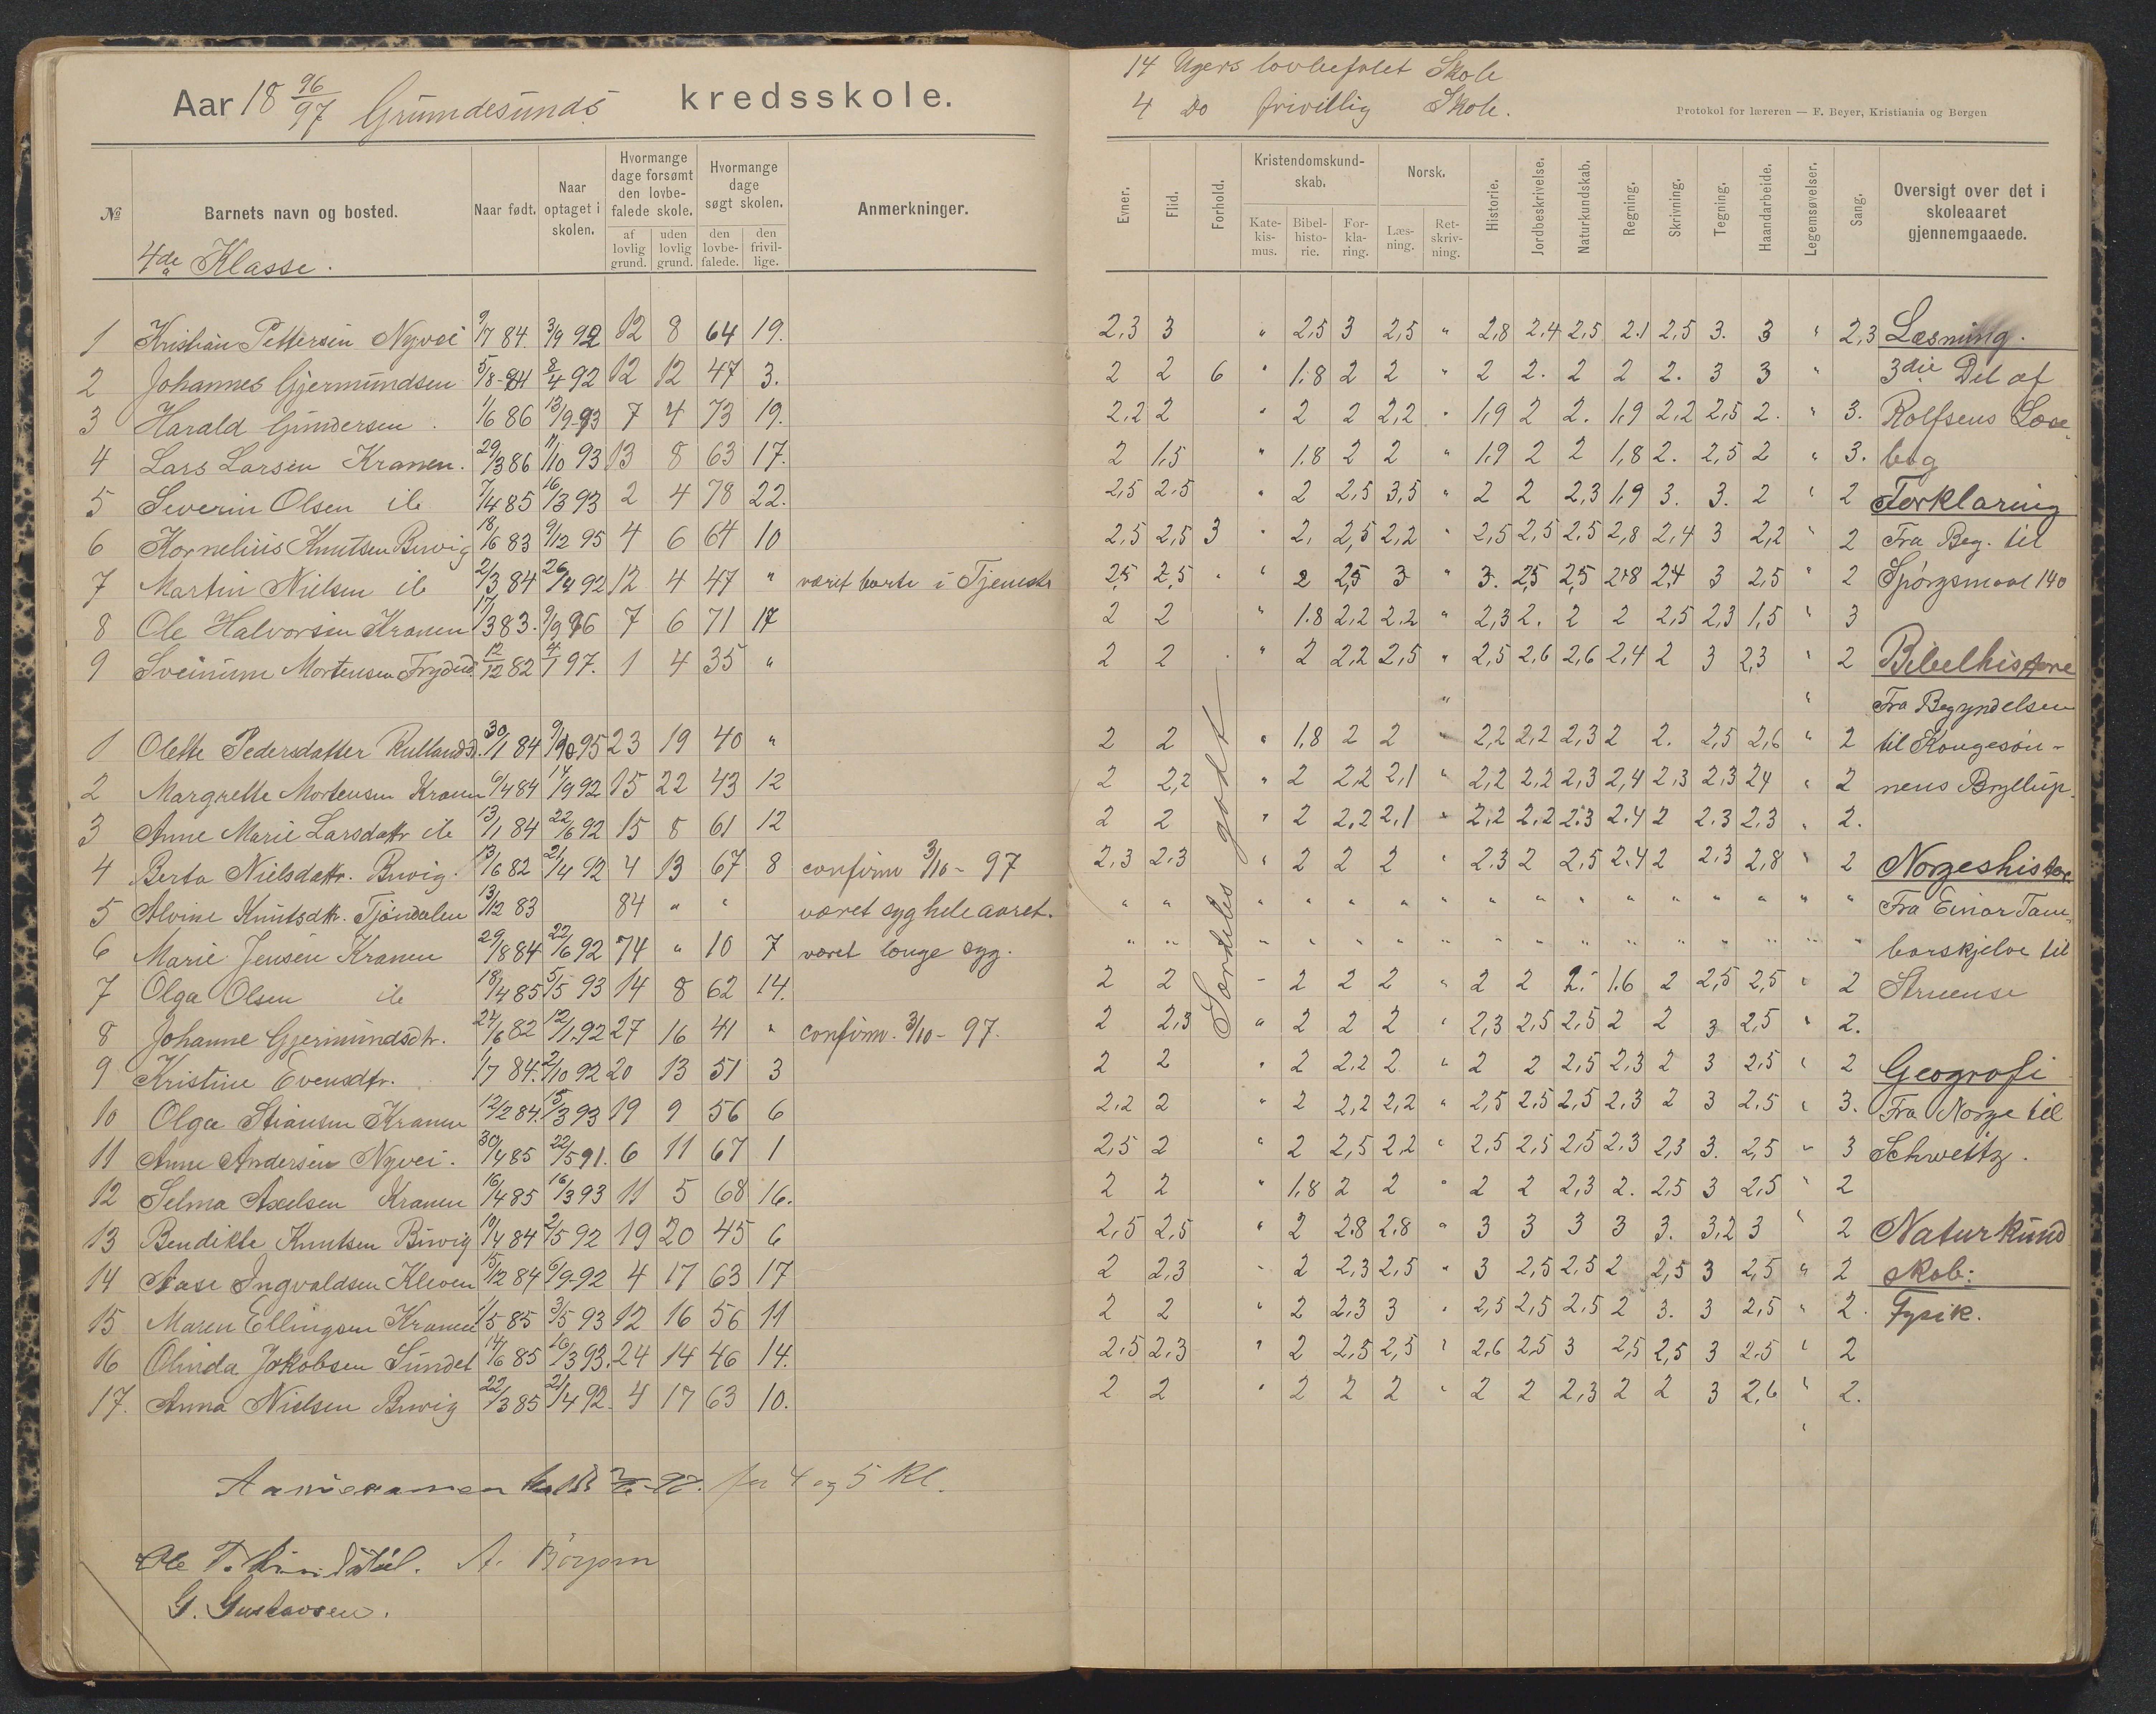 Aar 18 96/97 Grundesunds kredsskole.
№ Barnets navn og bosted. Naar født. Naar optaget i skolen. Hvormange dage forsømt den lovbefalede skole. af lovlig grund. uden lovlig grund. Hvormange dage søgt skolen. den lovbefalede. den frivillige. Anmerkninger.
4de Klasse.
1 Kristian Pettersen Nyvei 9/7 84. 3/9 92 12 8 64 19.
2 Johannes Gjermundsen 5/8-84 8/4 92 12 12 47 3.
3 Harald Gundersen. 1/6 86 13/9-93 7 4 73 19.
4 Lars Larsen Kranen. 29/3 86 11/10 93 13 8 63 17.
5 Severin Olsen ib 7/4 85 16/3 93 2 4 78 22.
6 Kornelius Knutsen Buvig 18/6 83 9/12 95 4 6 64 10
7 Martin Nielsen ib 2/3 84 26/4 92 12 4 47 " været borte i Tjeneste
8 Ole Halvorsen Kranen 17/3 83. 9/9 96 7 6 71 17
9 Sveinum Mortensen 12/12 82 4/1 97. 1 4 35 "
1 Olette Pedersdatter 30/1 84 9/10 95 23 19 40 "
2 Margrethe Mortensen Kranen 6/4 84 14/9 92 15 22 43 12
3 Anne Marie Larsdattr ib 13/1 84 22/6 92 15 8 61 12
4 Berta Nielsdattr. Buvig. 13/6 82 21/4 92 4 13 67 8 confirm 3/10-97
5 Alvine Knutsdtr. Tjöndalen 13/12 83 84 " " været syg hele aaret.
6 Marie Jensen Kranen 29/8 84 22/6 92 74 " 10 7 været længe syg.
7 Olga Olsen ib 18/4 85 5/5 93 14 8 62 14.
8 Johanne Gjermundsdtr. 24/6 82 12/1.92 27 16 41 " confirm. 3/10-97.
9 Kristine Evensdtr. 1/7 84. 2/10 92 20 13 51 3
10 Olga Stiansen Kranen 12/2 84. 15/3 93 19 9 56 6
11 Anne Andersen Nyvei. 30/4 85 22/5 91. 6 11 67 1
12 Selma Axelsen Kranen 16/4 85 16/3 93 11 5 68 16.
13 Bendikte Knutsen Buvig 10/4 84 2/5 92 19 20 45 6
14 Aase Ingvaldsen Kleven 15/12 84 6/9-92 4 17 63 17
15 Maren Ellingsen Kranen 1/5 85 3/5 93 12 16 56 11
16 Olinda Jakobsen Sundet 14/6 85 16/3 93. 24 14 46 14.
17. Anna Nielsen Buvig 22/3 85 21/4 92. 4 17 63 10.
for 4 og 5 Kl.
Ole T.
G. Gustavsen.
14 Ugers lovbefalet Skole
4 Do frivillig Skole.
Protokol for læreren — F. Beyer, Kristiania og Bergen
Evner. Flid. Forhold. Kristendomskundskab. Katekismus. Bibelhistorie. Forklaring. Norsk. Læsning. Retskrivning. Historie. Jordbeskrivelse. Naturkundskab. Regning. Skrivning. Tegning. Haandarbeide. Legemsøvelser. Sang. Oversigt over det i skoleaaret gjennemgaaede.
2,3 3 " 2,5 3 2,5 " 2,8 2,4 2,5 2.1 2,5 3. 3 " 2,3 Læsning.
2 2 6 " 1.8 2 2 " 2 2. 2 2 2. 3 3 " 3die Del af
2,2 2 " 2 2 2,2 " 1,9 2 2. 1,9 2,2 2,5 2. " 3. Rolfsens Læse
2 1,5 " 1.8 2 2 " 1,9 2 2 1,8 2. 2,5 2 " 3. bog
2,5 2,5 " 2 2,5 3,5 " 2 2 2,3 1,9 3. 3. 2 " 2 Forklaring
2,5 2,5 3 " 2, 2,5 2,2 " 2,5 2,5 2,5 2,8 2,4 3 2,2 " 2 Fra Beg. til
2,5 2,5 " " 2 2,5 3 " 3. 2,5 2,5 2,8 2,4 3 2,5 " 2 Spörgsmaal 140
2 2 " 1.8 2,2 2,2 " 2,3 2. 2 2 2,5 2,3 1,5 " 3
2 2 " 2 2,2 2,5 " 2,5 2,6 2,6 2,4 2 3 2,3 " 2 Bibelhistorie
" " Fra Begyndelsen
2 2 " 1,8 2 2 " 2,2 2,2 2,3 2 2. 2,5 2,6 " 2 til Kongesön-
2 2,2 " 2 2,2 2,1 " 2,2 2,2 2,3 2,4 2,3 2,3 2,4 " 2 nens Bryllup.
2 2 " 2 2,2 2,1 " 2,2 2,2 2.3 2.4 2 2.3 2.3 " 2.
2,3 2,3 " 2 2 2 " 2.3 2 2,5 2.4 2 2.3 2,8 " 2 Norgeshistor
" " " " " " " " " " " " " " " " " Fra Einar Tam-
" " " " " " " " " " " " " " " " " barskjelve til
2 2 - 2 2 2 " 2 2 2. 1.6 2 2,5 2,5 " 2 Struense
2 2,3 " 2 2 2 " 2,3 2,5 2,5 2 2 3 2,5 " 2.
2 2 " 2 2,2 2 " 2 2 2,5 2,3 2 3 2,5 " 2 Geografi
2,2 2 " 2 2,2 2,2 " 2,5 2,5 2,5 2,3 2 3 2,5 " 3. Fra Norge til
2,5 2 " 2 2,5 2,2 " 2,5 2,5 2,5 2,3 2,3 3. 2,5 " 3 Schweitz.
2 2 " 1,8 2 2 " 2 2 2,3 2. 2,5 3 2,5 " 2
2,5 2,5 " 2 2.8 2.8 " 3 3 3 3 3. 3,2 3 " 2 Naturkund
2 2,3 " 2 2,3 2,5 " 3 2,5 2,5 2 2,5 3 2,5 " 2 skab:
2 2 " 2 2,3 3 " 2,5 2,5 2,5 2 3. 3 2,5 " 2. Fysik.
2,5 2,3 " 2 2,5 2,5 " 2,6 2,5 3 2,5 2,5 3 2,5 " 2
2 2 " 2 2 2 " 2 2 2,3 2 2 3 2,6 " 2.
Særdeles godt